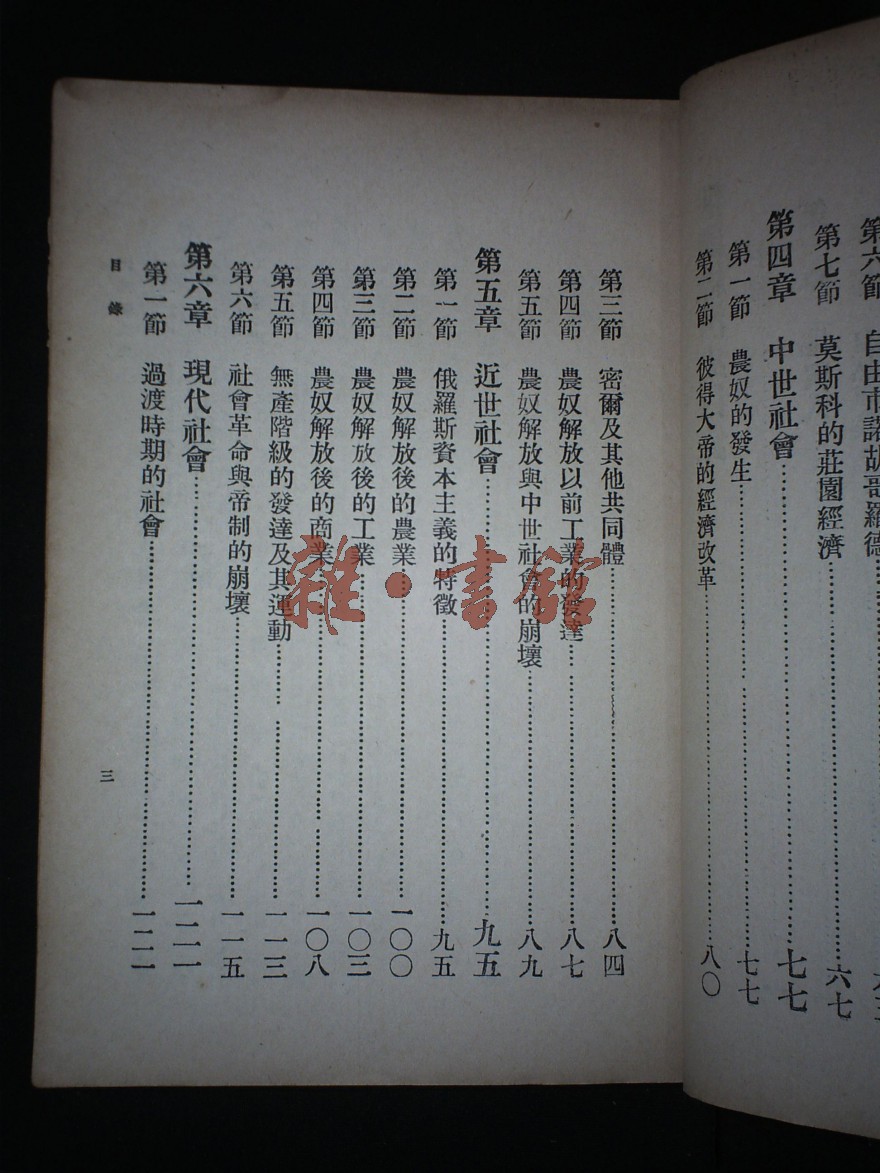 第六節 自由市諾胡哥羅德
第七節 莫斯科的莊園經濟……六七
第四章 中世社會……七七
第一節 農奴的發生……七七
第二節 彼得大帝的經濟改革……八〇
第三節 密爾及其他共同體……八四
第四節 農奴解放以前工業的發達……八七
第五節 農奴解放與中世社會的崩壞……八九
第五章 近世社會……九五
第一節 俄羅斯資本主義的特徵……九五
第二節 農奴解放後的農業……一〇〇
第三節 農奴解放後的工業……一〇三
第四節 農奴解放後的商業……一〇八
第五節 無產階級的發達及其運動……一一三
第六節 社會革命與帝制的崩壞……一一五
第六章 現代社會……一二一
第一節 過渡時期的社會……一二一
目錄
三
雜·書館